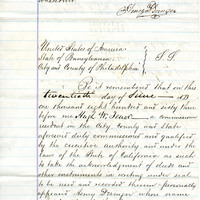 Henry Deringer
United States of America
State of Pennsylvania
City and County of Philadelphia } S.S.
Be it remembered that on this
twentieth day of June AD
one thousand eight hundred and sixty three
before me a commissioner
resident in the City County and State
aforesaid duly commissioned and qualified
by the executive authority and under the
laws of the State of California as such
to take the acknowledgment of deeds and
other instruments in writing under seal
to be used and recorded therein personally
appeared Henry Deringer whose name